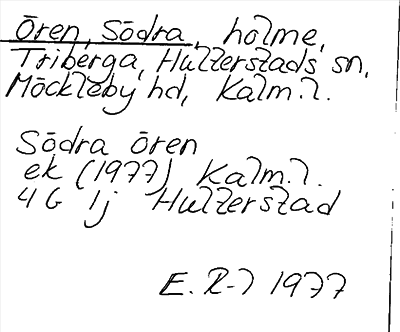 Ören, Södra, holme,
Triberga, Hulterstads sn,
Möckleby hd, Kalm.l.
Södra ören
ek (1977) Kalm.l.
4G 1j Hulterstad
E. R-n 1977